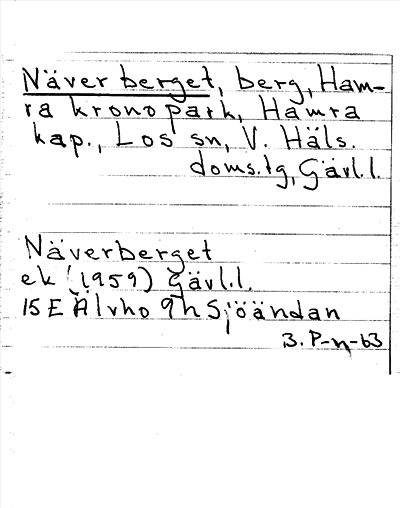 Näverberget, berg, Ham-
ra kronopark, Hamra
kap., Los sn, V. Häls.
doms.tg, Gävl.l.
Näverberget
ek (1959) Gävl.l.
15E Älvho 9h Sjöändan
B. P-n-63